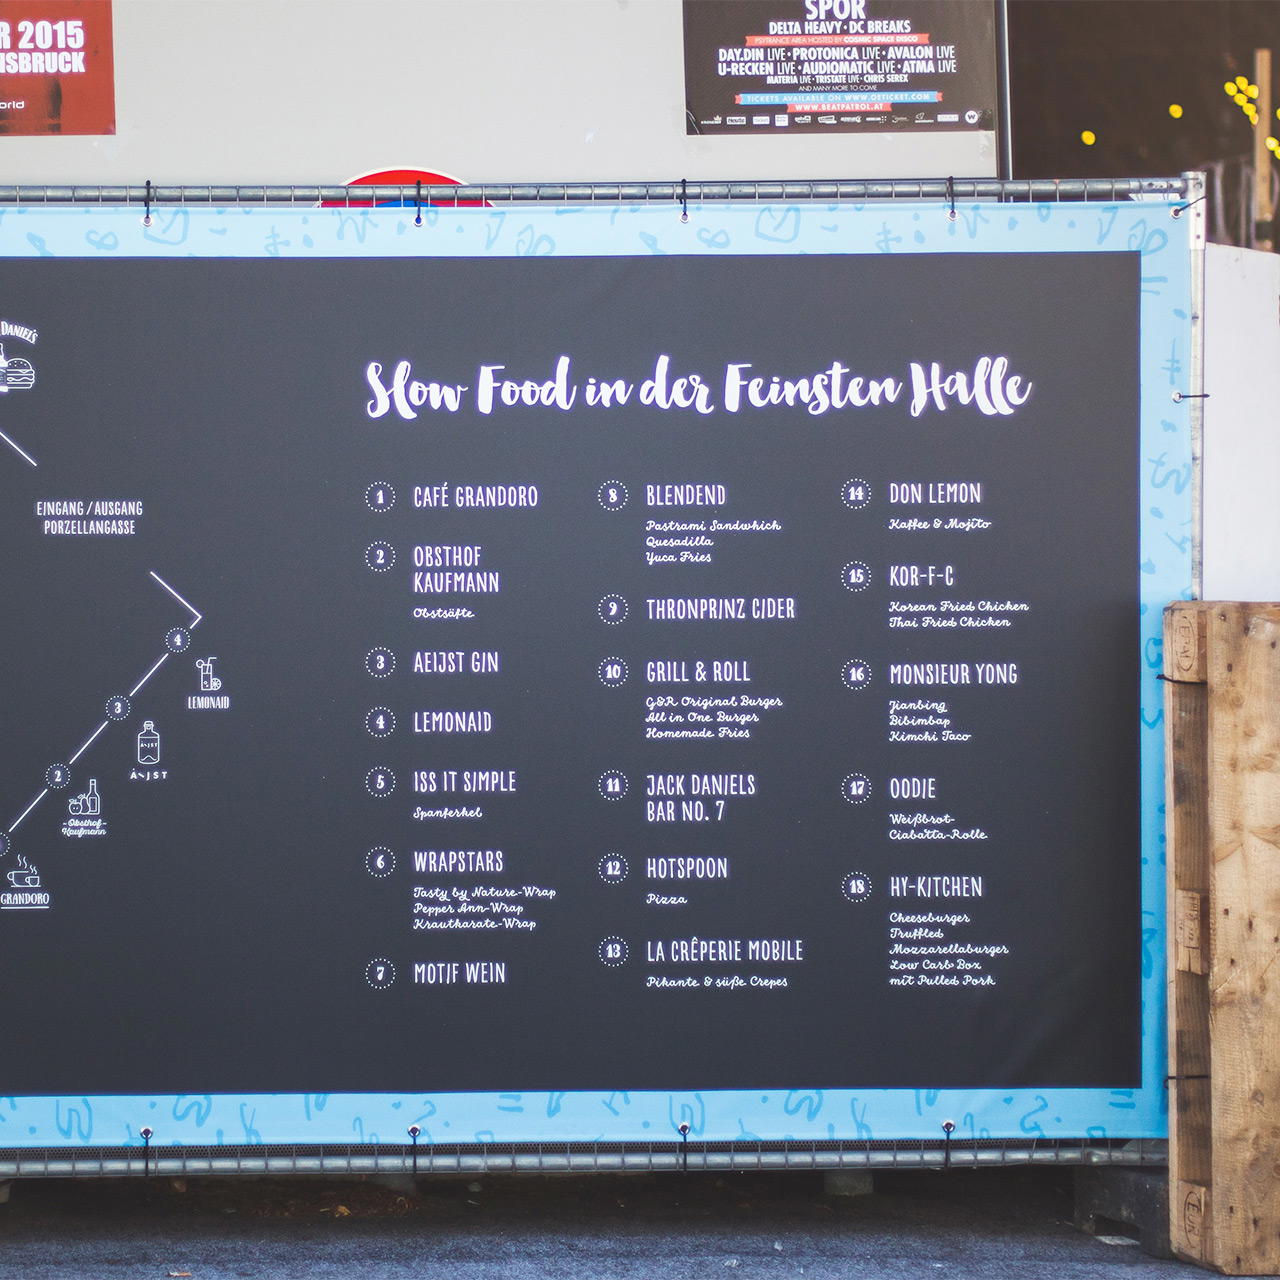 R 2015
NSBRUCK
orld
SPOR
DELTA HEAVY • DC BREAKS
PSYTRANCE AREA HOSTED BY COSMIC SPACE DISCO
DAY.DIN LIVE • PROTONICA LIVE • AVALON LIVE
U-RECKEN LIVE • AUDIOMATIC LIVE • ATMA LIVE
MATERIA LIVE • TRISTATE LIVE • CHRIS SEREX
AND MANY MORE TO COME
TICKETS AVAILABLE ON WWW.OETICKET.COM
WWW.BEATPATROL.AT
DANIEL'S
EINGANG / AUSGANG
PORZELLANGASSE
4
LEMONAID
3
Ä~JST
2
-Obsthof-
Kaufmann
GRANDORO
Slow Food in der Feinsten Halle
1 CAFÉ GRANDORO
2 OBSTHOF
KAUFMANN
Obstsäfte
3 AEIJST GIN
4 LEMONAID
5 ISS IT SIMPLE
Spanferkel
6 WRAPSTARS
Tasty by Nature-Wrap
Pepper Ann-Wrap
Krautkarate-Wrap
7 MOTIF WEIN
8 BLENDEND
Pastrami Sandwhich
Quesadilla
Yuca Fries
9 THRONPRINZ CIDER
10 GRILL & ROLL
G&R Original Burger
All in One Burger
Homemade Fries
11 JACK DANIELS
BAR NO. 7
12 HOTSPOON
Pizza
13 LA CRÊPERIE MOBILE
Pikante & süße Crepes
14 DON LEMON
Kaffee & Mojito
15 KOR-F-C
Korean Fried Chicken
Thai Fried Chicken
16 MONSIEUR YONG
Jianbing
Bibimbap
Kimchi Taco
17 OODIE
Weißbrot-
Ciabatta-Rolle
18 HY-KITCHEN
Cheeseburger
Truffled
Mozzarellaburger
Low Carb Box
mit Pulled Pork